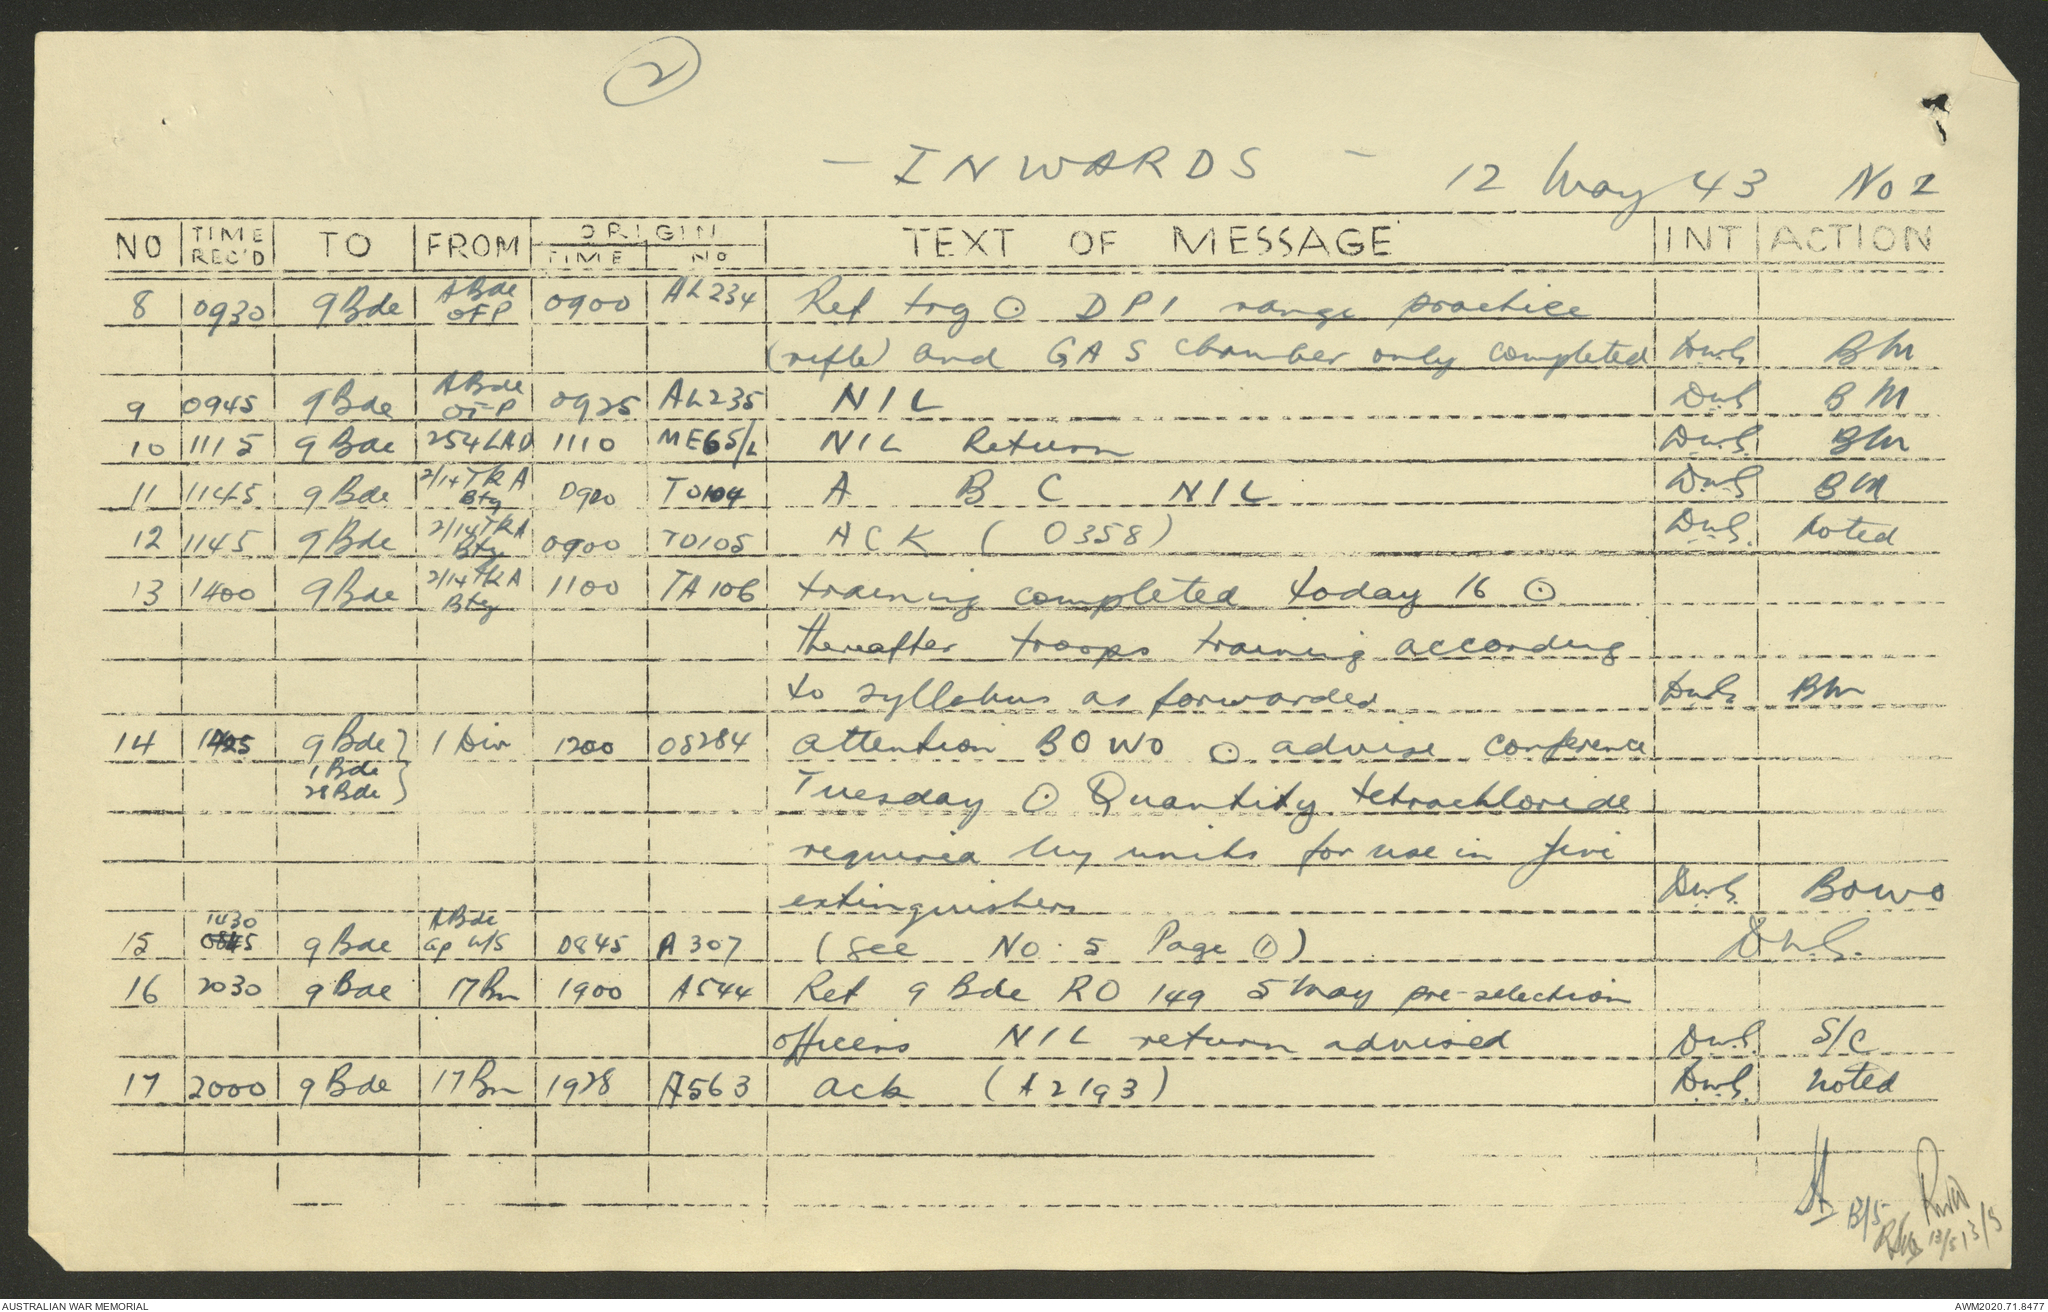 2
- INWARDS - 12 May 43 No 2
NO TIME REC'D TO FROM ORIGIN TIME NO TEXT OF MESSAGE INT ACTION
8 0930 9 Bde A Bde OFP 0900 AL234 Ref trg ⊙ DP1 range practice
(rifle) and GAS chamber only completed DWS BM
9 0945 9 Bde A Bde OFP 0925 AL235 NIL DWS BM
10 1115 9 Bde 254 LAD 1110 ME65/L NIL Return DWS. BM
11 1145 9 Bde 2/14 TKA Bty 0900 TO104 A B C NIL DWS BM
12 1145 9 Bde 2/14 TKA Bty 0900 TO105 ACK (0358) DWS. Noted
13 1400 9 Bde 2/14 TKA Bty 1100 TA106 training completed today 16 ⊙
thereafter troops training according
to syllabus as forwarded DWS BM
14 1425 9 Bde 1 Div 1200 O8284 attention BOWO ⊙ advise conference
1 Bde
28 Bde Tuesday ⊙ Quantity tetrachloride
required by units for use in fire
extinguishers DWS. BOWO
15 1430 0845 9 Bde A Bde Gp W/S 0845 A307 (see No. 5 Page 1) DWS.
16 2030 9 Bde 17 Bn 1900 A544 Ref 9 Bde RO 149 5 May pre-selection
officers NIL return advised DWS. S/C
17 2000 9 Bde 17 Bn 1928 A563 Ack (A2193) DWS. Noted
13/5
13/5 13/5
AUSTRALIAN WAR MEMORIAL AWM2020.71.8477